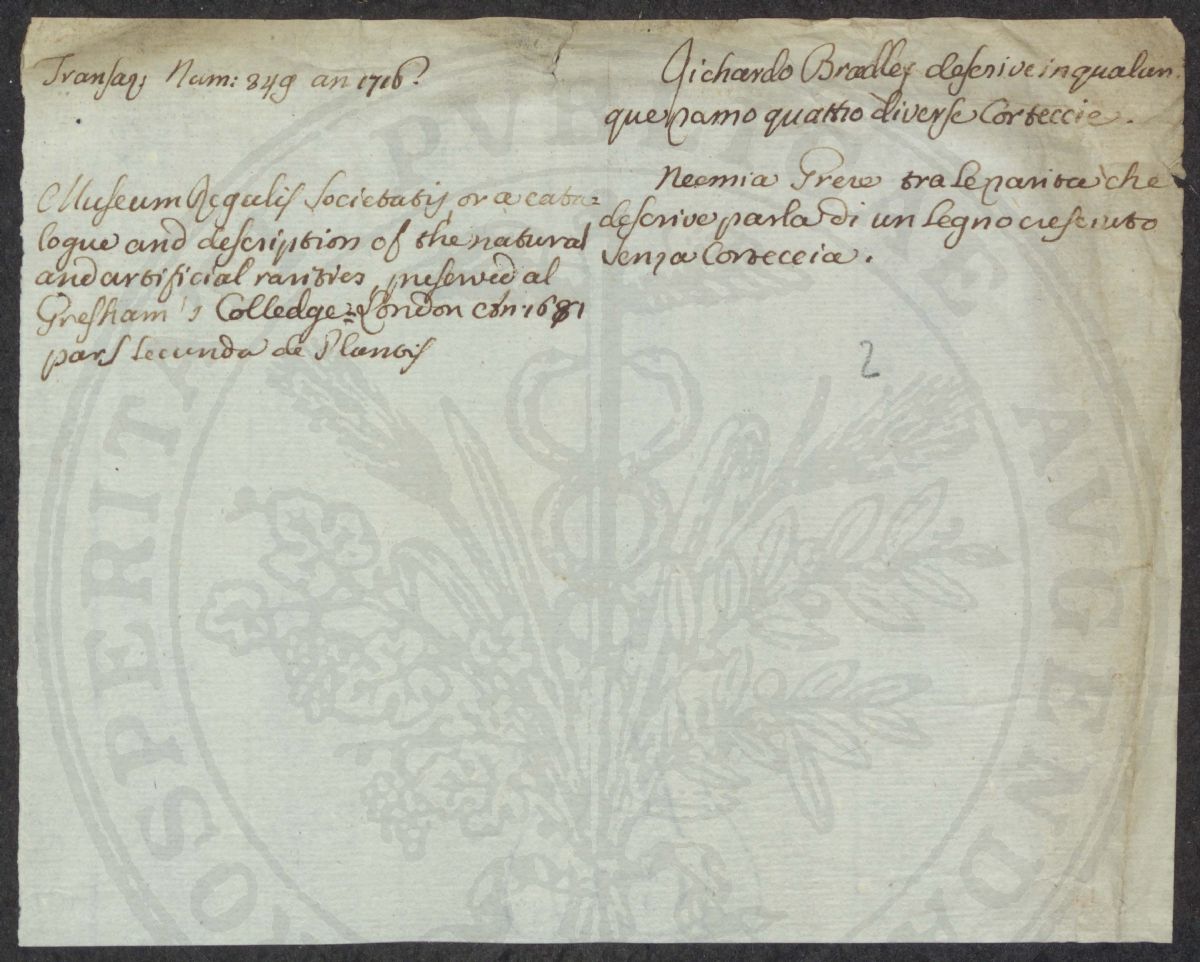 Transaq; Num: 349 an 1716.
Richardo Bradley descrive in qualun
que ramo quattro diverse Corteccie.
Museum Regalis Societatis, or a cata=
logue and description of the natural
and artificial rarities, preserved al
Gresham's Colledge London 1681
pars secunda de Plantis
Neemia Grew tra le rarita che
descrive parla di un legno cresciuto
senza Corteccia.
2
PROSPERITATI PVBLICAE AVGENDAE